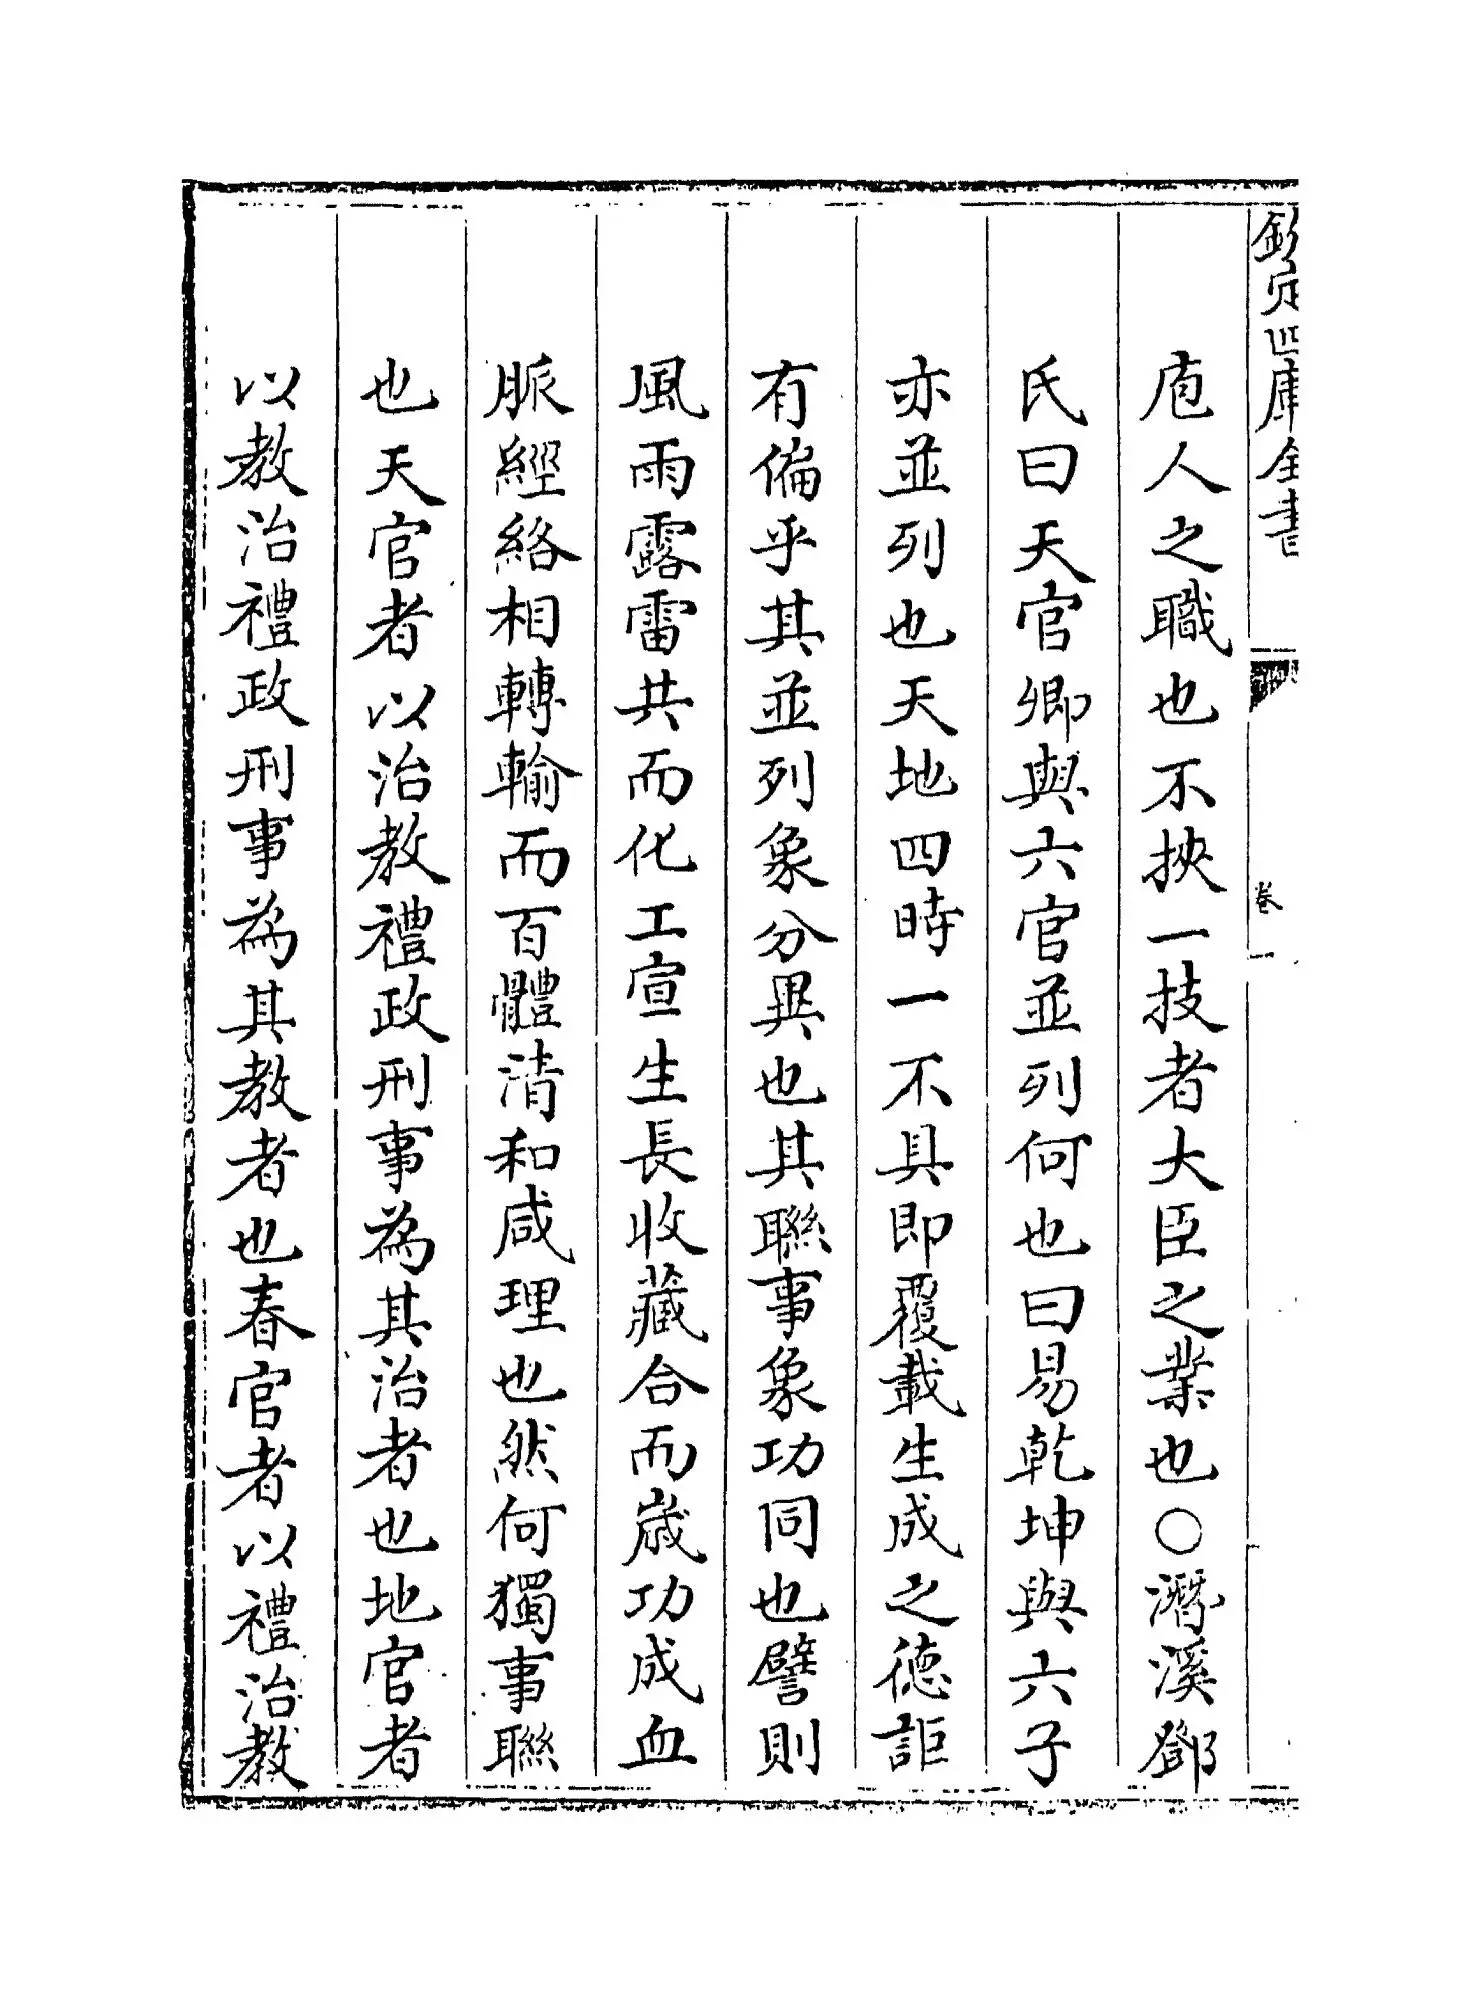 欽定四庫全書
卷一
庖人之職也不挾一技者大臣之業也○潛溪鄧
氏曰天官卿與六官並列何也曰易乾坤與六子
亦並列也天地四時一不具即覆載生成之德詎
有偏乎其並列象分異也其聯事象功同也譬則
風雨露雷共而化工宣生長收藏合而嵗功成血
脈經絡相轉輸而百體清和咸理也然何獨事聯
也天官者以治教禮政刑事為其治者也地官者
以教治禮政刑事為其教者也春官者以禮治教